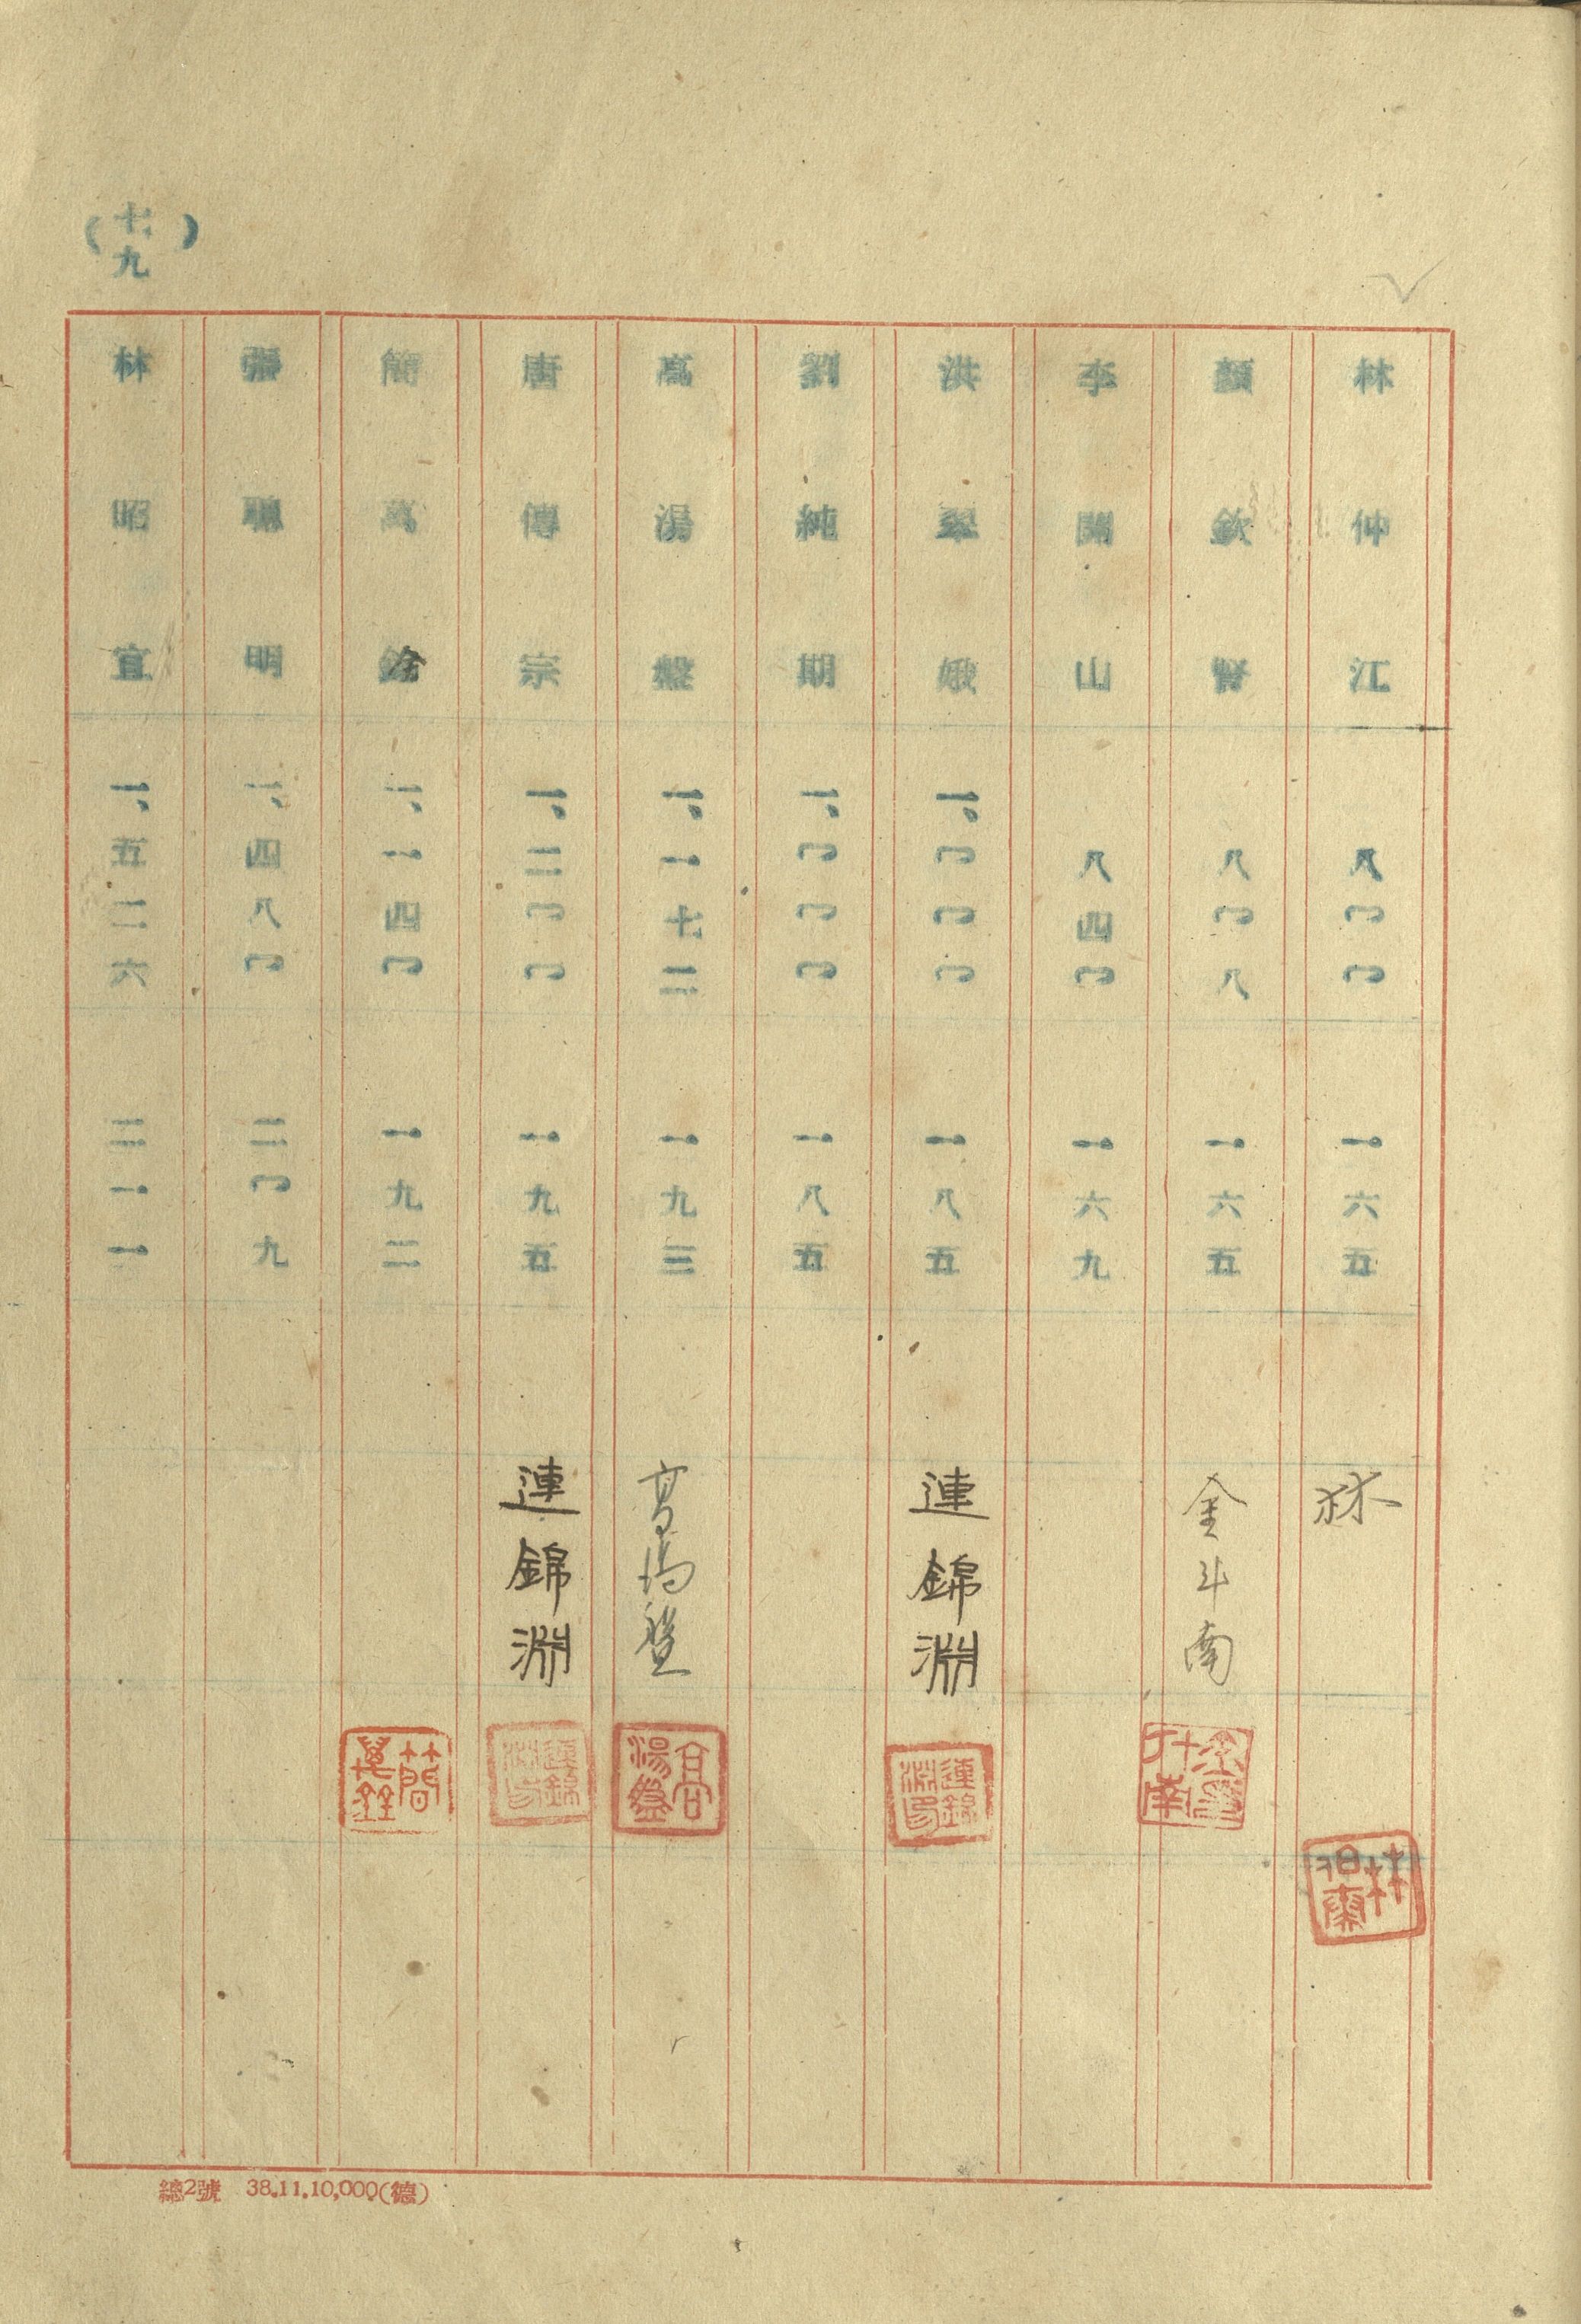 (七九)
林仲江 八〇〇 一六五 林
顏欽賢 八〇八 一六五 金斗南
李開山 八四〇 一六九
洪翠娥 一、〇〇〇 一八五 連錦淵 連錦淵印
劉純期 一、〇〇〇 一八五
高湯盤 一、一七二 一九三 高湯盤 高湯盤
唐傳宗 一、二〇〇 一九五 連錦淵 連錦淵印
簡萬銓 一、一四〇 一九二 簡萬銓
張聰明 一、四八〇 二〇九
林昭宜 一、五二六 二一一
總2號 38.11.10,000(德)